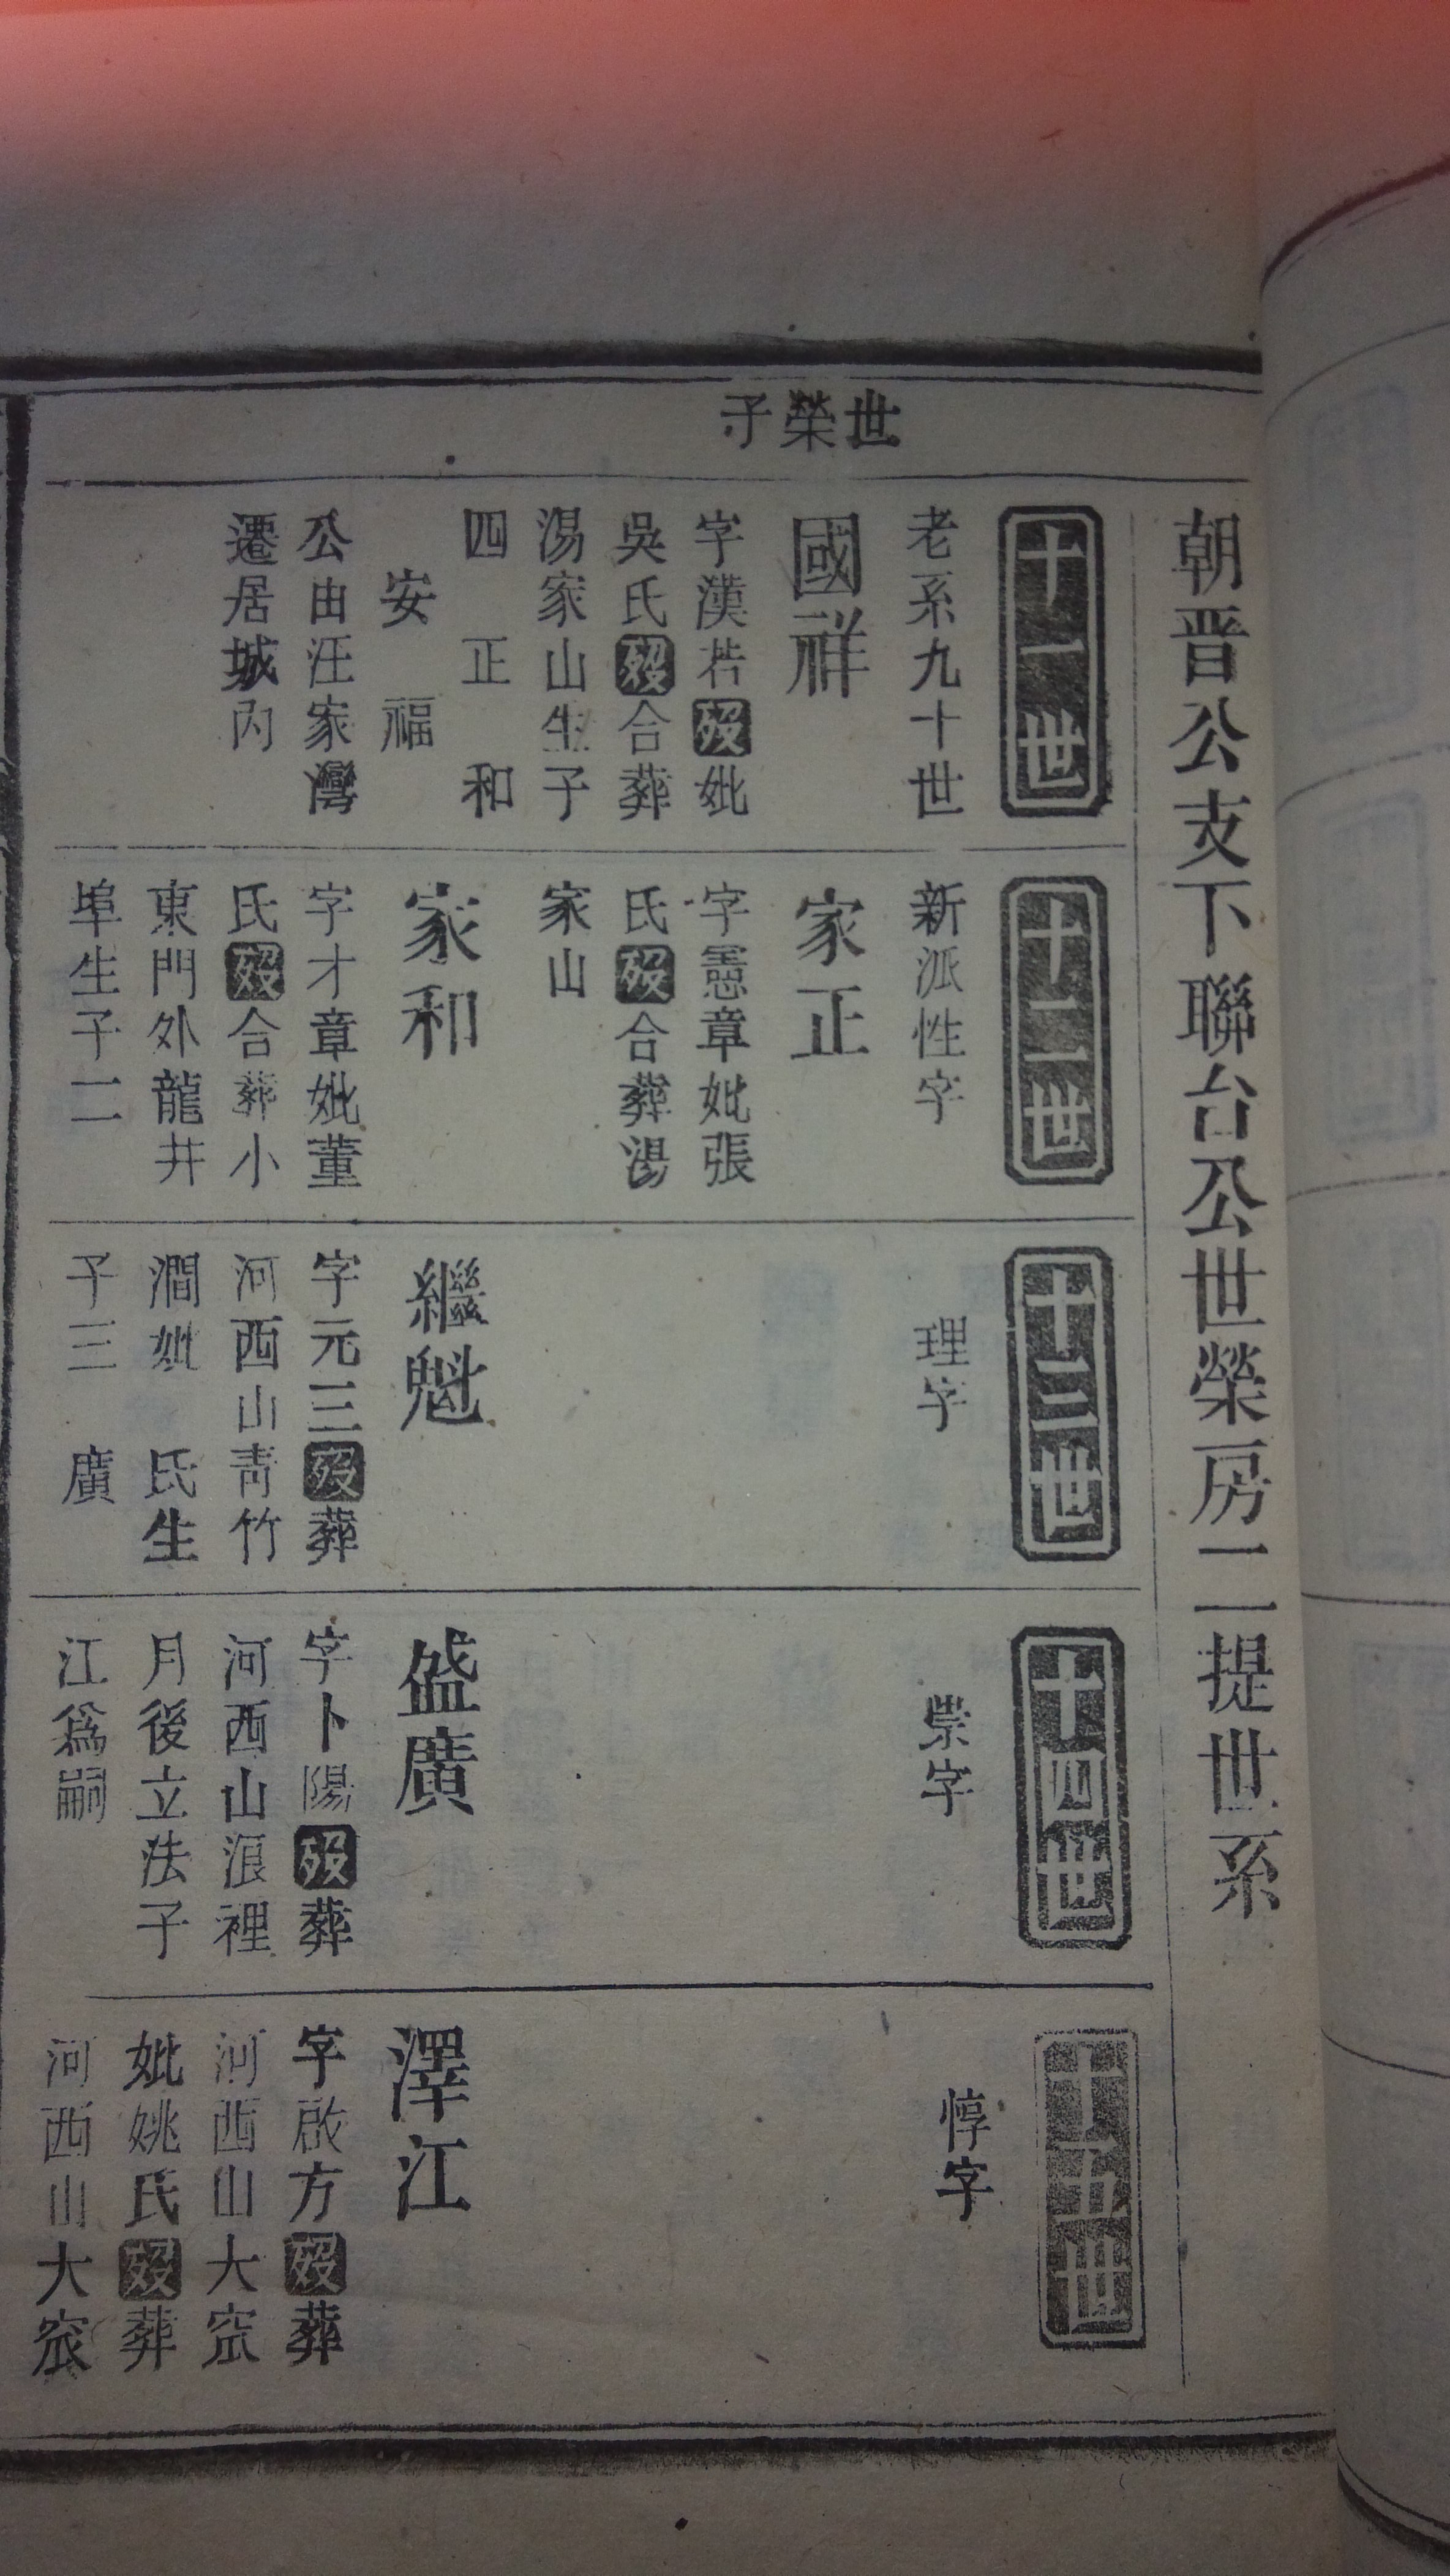 朝晋公支下聯台公世榮房二提世系
世榮子
十一世
老系九十世
國祥
字漢若歿妣
吳氏歿合葬
湯家山生子
四 正 和
安 福
公由汪家灣
遷居城内
十二世
新派性字
家正
字憲章妣張
氏歿合葬湯
家山
家和
字才章妣董
氏歿合葬小
東門外龍井
埠生子二
十三世
理字
繼魁
字元三歿葬
河西山青竹
澗妣 氏生
子三 廣
十四世
崇字
盛廣
字卜陽歿葬
河西山浪裡
月後立法子
江爲嗣
十五世
惇字
澤江
字啟方歿葬
河西山大窊
妣姚氏歿葬
河西山大窊